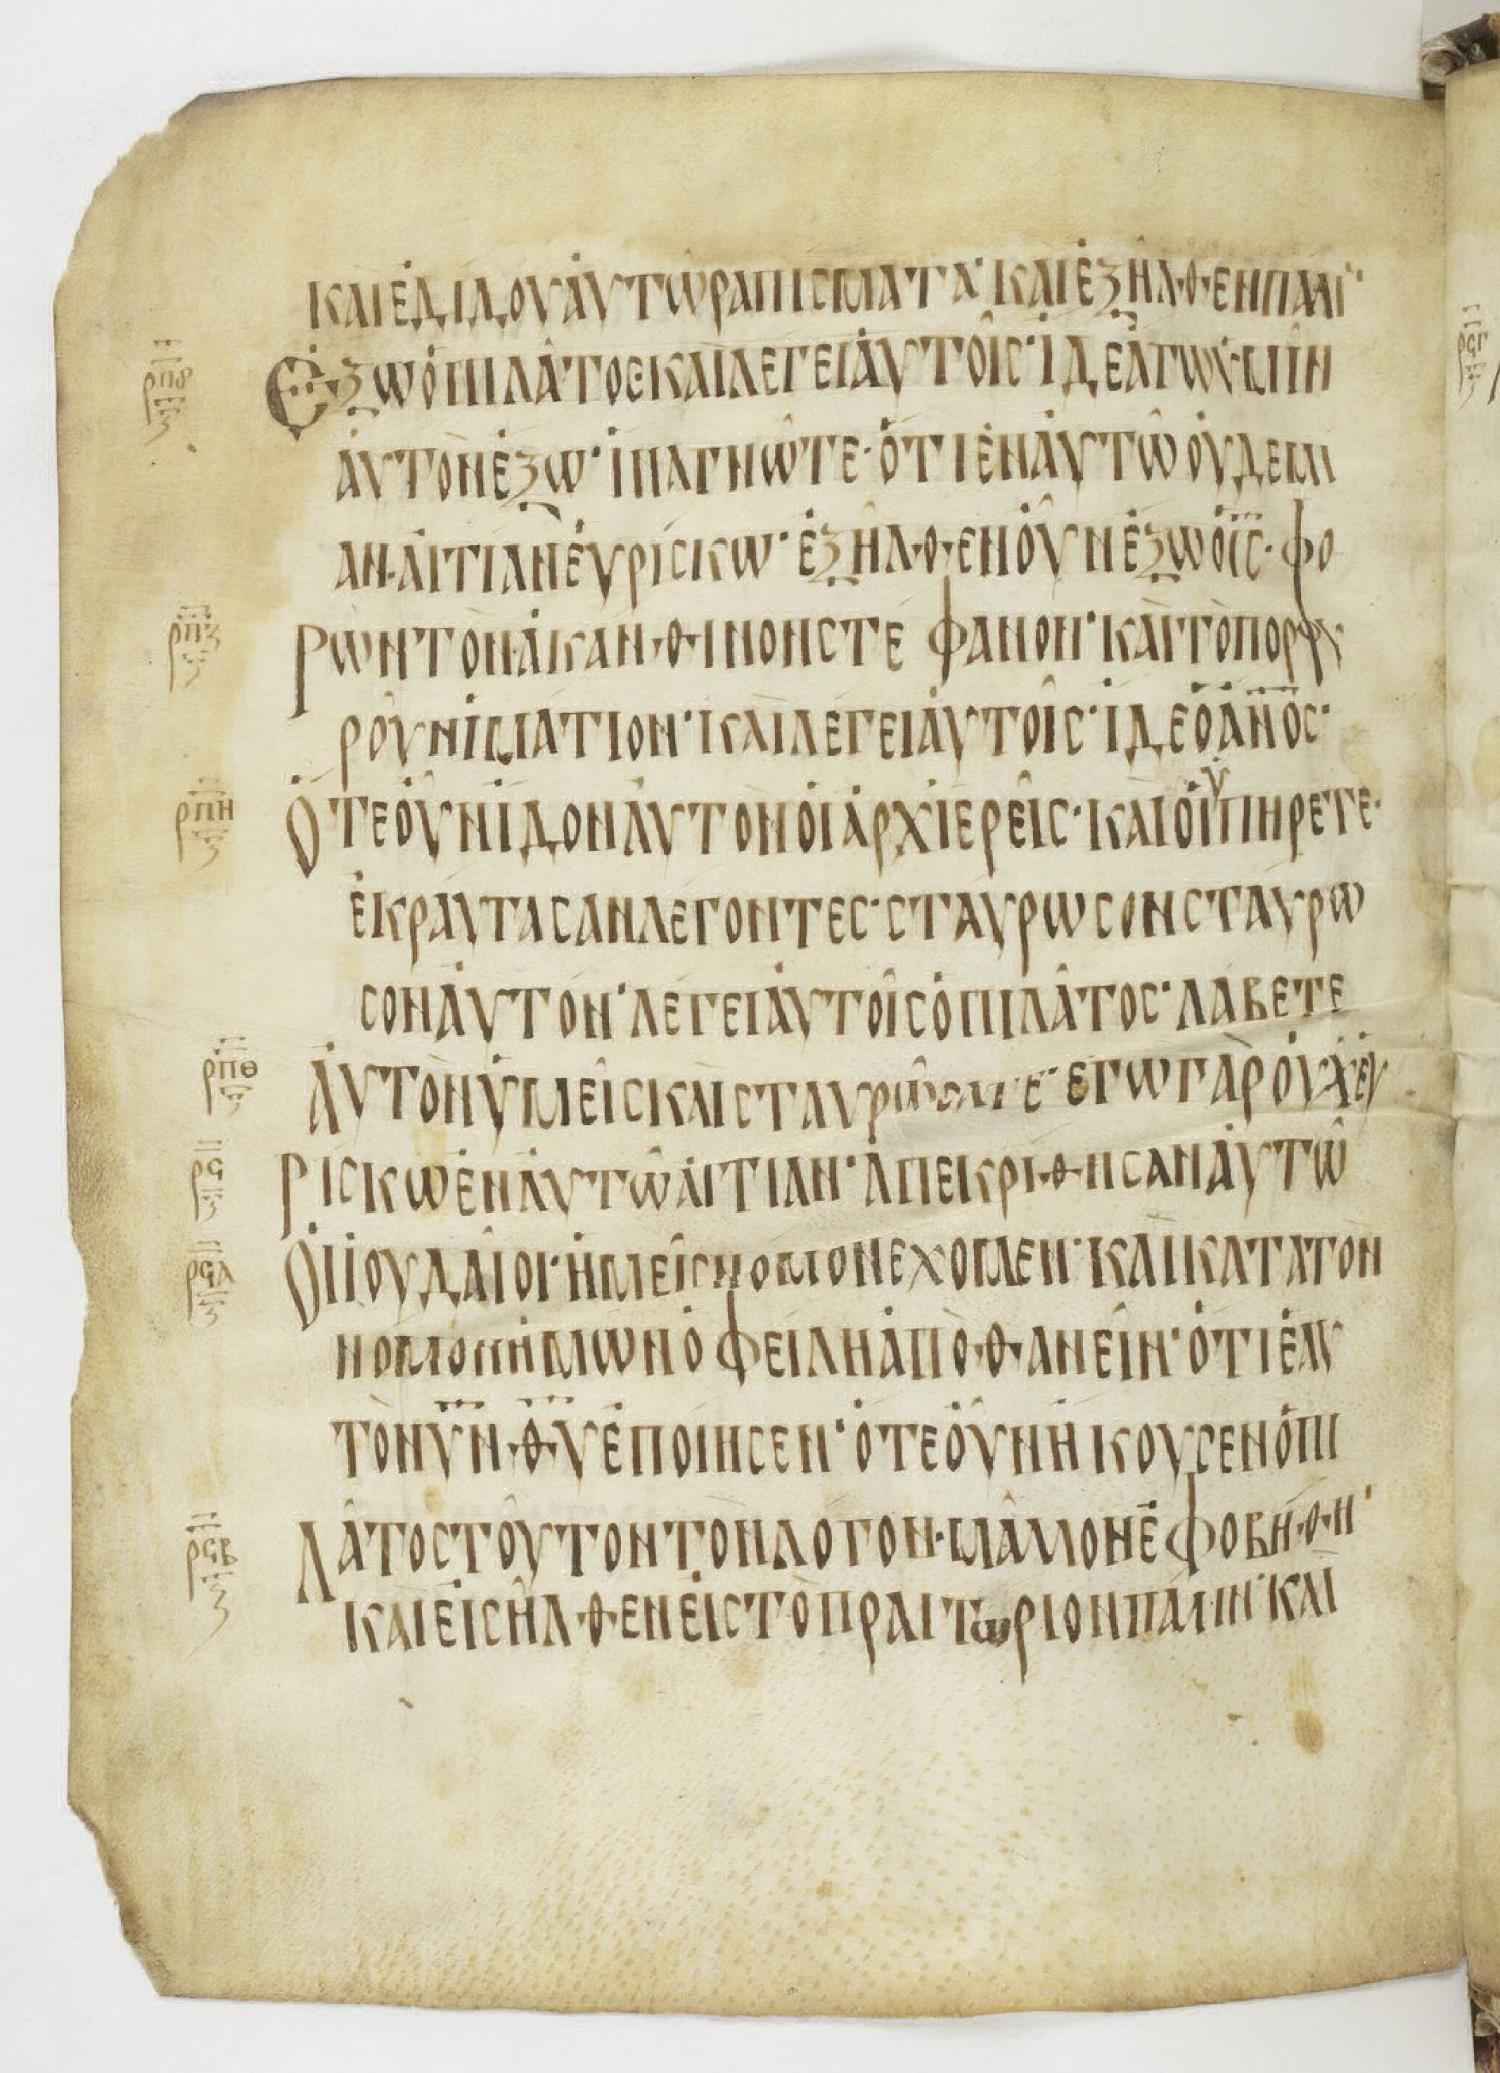 ΚΑΙ ΕΔΙΔΟΥ ΑΥΤΩ ΡΑΠΙCΜΑΤΑ· ΚΑΙ ΕΞΗΛΘΕΝ ΠΑΛΙ
ΡΠϚ ΕΞΩ Ο ΠΙΛΑΤΟC ΚΑΙ ΛΕΓΕΙ ΑΥΤΟΙC· ΙΔΕ ΑΓΩ ΥΜΙΝ
ΑΥΤΟΝ ΕΞΩ· ΙΝΑ ΓΝΩΤΕ· ΟΤΙ ΕΝ ΑΥΤΩ ΟΥΔΕΜΙ
ΑΝ ΑΙΤΙΑΝ ΕΥΡΙCΚΩ· ΕΞΗΛΘΕΝ ΟΥΝ ΕΞΩ Ο ΙC· ΦΟ
ΡΠΖ ΡΩΝ ΤΟΝ ΑΚΑΝΘΙΝΟΝ CΤΕΦΑΝΟΝ· ΚΑΙ ΤΟ ΠΟΡΦΥ
ΡΟΥΝ ΙΜΑΤΙΟΝ· ΚΑΙ ΛΕΓΕΙ ΑΥΤΟΙC· ΙΔΕ Ο ΑΝΟC·
ΡΠΗ ΟΤΕ ΟΥΝ ΙΔΟΝ ΑΥΤΟΝ ΟΙ ΑΡΧΙΕΡΕΙC· ΚΑΙ ΟΙ ΥΠΗΡΕΤΕ·
ΕΚΡΑΥΓΑCΑΝ ΛΕΓΟΝΤΕC· CΤΑΥΡΩCΟΝ CΤΑΥΡΩ
CΟΝ ΑΥΤΟΝ· ΛΕΓΕΙ ΑΥΤΟΙC Ο ΠΙΛΑΤΟC· ΛΑΒΕΤΕ
ΡΠΘ ΑΥΤΟΝ ΥΜΕΙC ΚΑΙ CΤΑΥΡΩCΑΤΕ· ΕΓΩ ΓΑΡ ΟΥΧ ΕΥ
ΡϤ ΡΙCΚΩ ΕΝ ΑΥΤΩ ΑΙΤΙΑΝ· ΑΠΕΚΡΙΘΗCΑΝ ΑΥΤΩ
ΡϤΑ ΟΙ ΙΟΥΔΑΙΟΙ· ΗΜΕΙC ΝΟΜΟΝ ΕΧΟΜΕΝ· ΚΑΙ ΚΑΤΑ ΤΟΝ
ΝΟΜΟΝ ΗΜΩΝ ΟΦΕΙΛΗ ΑΠΟΘΑΝΕΙΝ· ΟΤΙ ΕΑΥ
ΤΟΝ ΥΝ ΘΥ ΕΠΟΙΗCΕΝ· ΟΤΕ ΟΥΝ ΗΚΟΥCΕΝ Ο ΠΙ
ΡϤΒ ΛΑΤΟC ΤΟΥΤΟΝ ΤΟΝ ΛΟΓΟΝ· ΜΑΛΛΟΝ ΕΦΟΒΗΘΗ·
ΚΑΙ ΕΙCΗΛΘΕΝ ΕΙC ΤΟ ΠΡΑΙΤΩΡΙΟΝ ΠΑΛΙΝ· ΚΑΙ